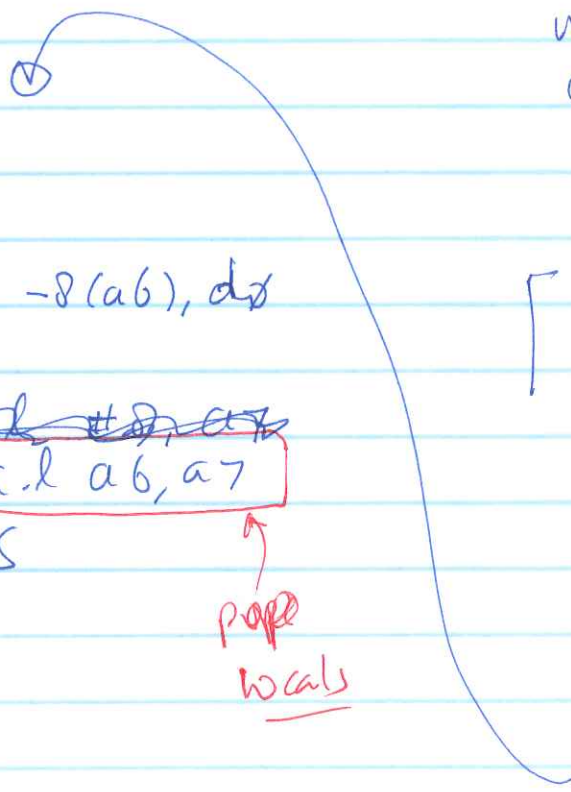 -8(a6), dø
#8, a7
.l a6, a7
s
locals